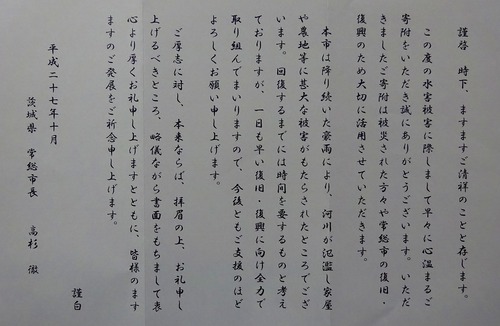 謹啓　時下、ますますご清祥のことと存じます。
この度の水害被害に際しまして早々に心温まるご
寄附をいただき誠にありがとうございます。いただ
きましたご寄附は被災された方々や常総市の復旧・
復興のため大切に活用させていただきます。
本市は降り続いた豪雨により、河川が氾濫し家屋
や農地等に甚大な被害がもたらされたところでござ
います。回復するまでには時間を要するものと考え
ておりますが、一日も早い復旧・復興に向け全力で
取り組んでまいりますので、今後ともご支援のほど
よろしくお願い申し上げます。
ご厚志に対し、本来ならば、拝眉の上、お礼申し
上げるべきところ、略儀ながら書面をもちまして衷
心より厚くお礼申し上げますとともに、皆様のます
ますのご発展をご祈念申し上げます。
謹白
平成二十七年十月
茨城県　常総市長　高杉　徹